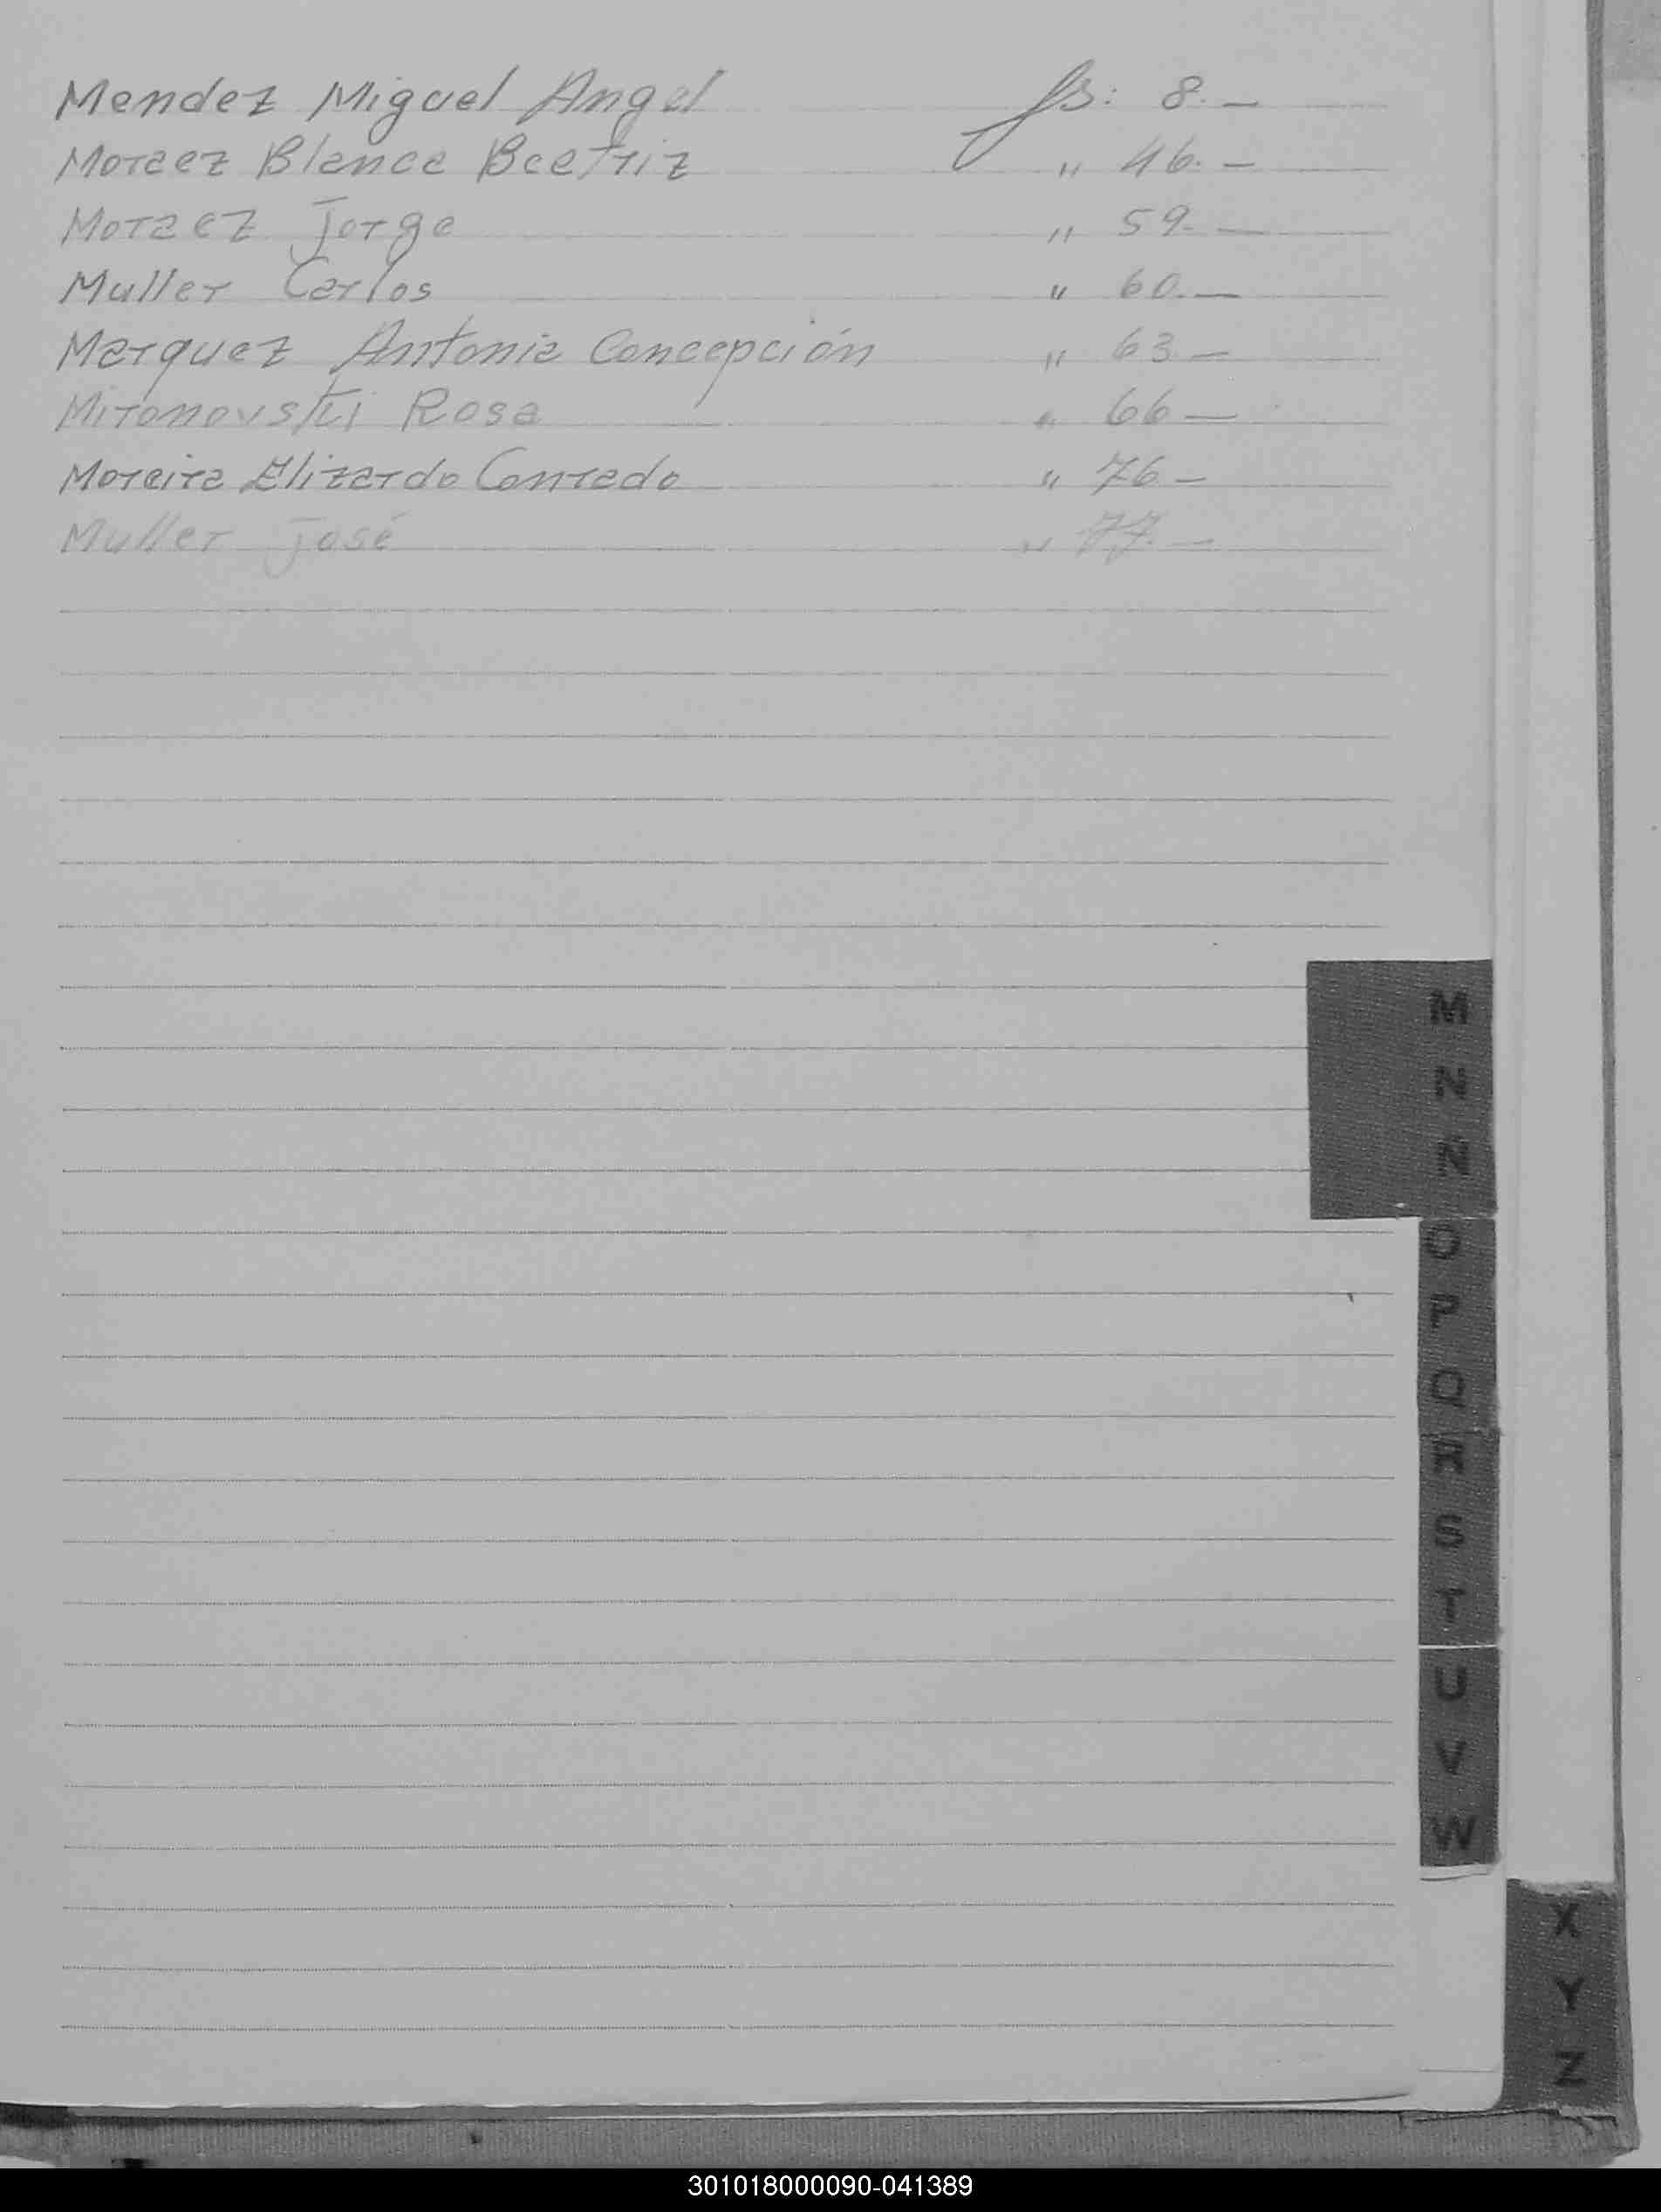 Mendez Miguel Angel fs: 8.—
Moraez Blanca Beatriz " 46.—
Moraez Jorge " 59.—
Muller Carlos " 60.—
Marquez Antonia Concepción " 63—
Mironovski Rosa " 66—
Moreira Elizardo Conrado " 76—
Muller José " 77.—
M
N
N
O
P
Q
R
S
T
U
V
W
X
Y
Z
301018000090-041389